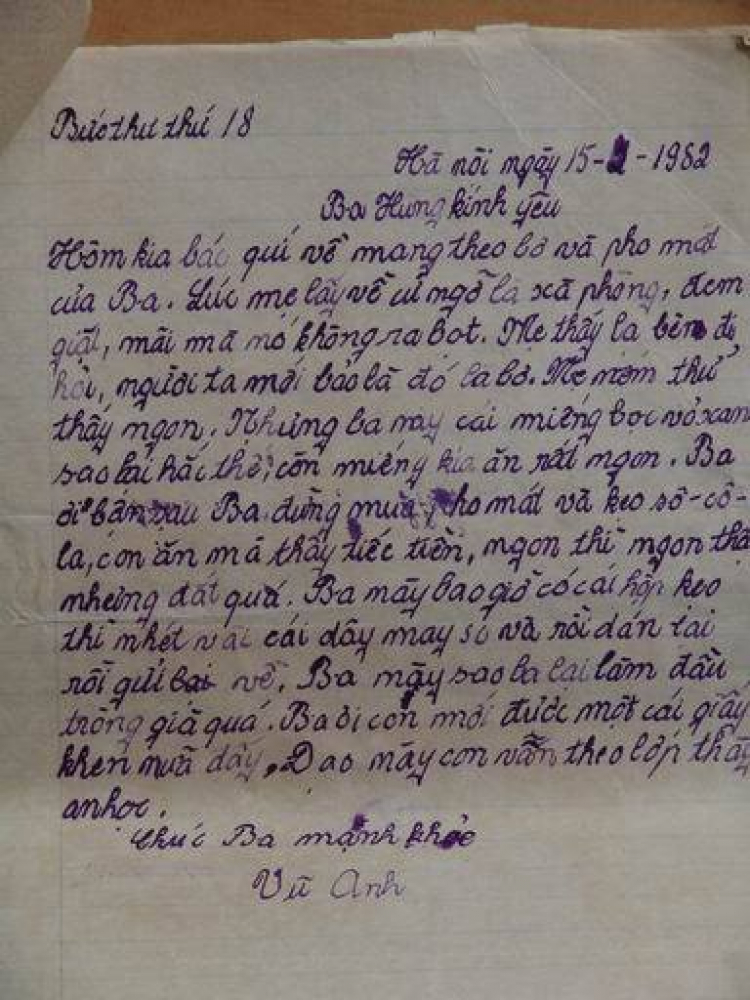 Bức thư thứ 18
Hà nội ngày 15-2-1982
Ba Hưng kính yêu
Hôm kia bác quí về mang theo bơ và pho mát
của Ba. Lúc mẹ lấy về cứ ngỡ là xà phòng, đem
giặt, mãi mà nó không ra bọt. Mẹ thấy lạ bèn đi
hỏi, người ta mới bảo là đó là bơ. Mẹ nếm thử
thấy ngon. Nhưng ba này cái miếng bọc vỏ xan
sao lại hắc thế, còn miếng kia ăn rất ngon. Ba
đi bán sau Ba đừng mua pho mát và kẹo sô-cô-
la, con ăn mà thấy tiếc tiền, ngon thì ngon thậ
nhưng đắt quá. Ba mày bao giờ có cái hộp kẹo
thì nhét vài cái dây may so và rồi dán lại
rồi gửi về. Ba mày sao ba lại làm đầu
trông già quá. Ba ơi con mới được một cái giấy
khen nữa đấy. Dạo này con vẫn theo lớp thầy
anh học.
Chúc Ba mạnh khỏe
Vũ Anh